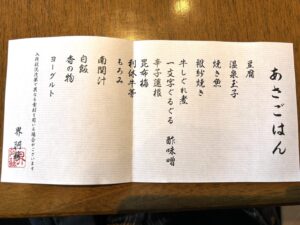 あさごはん
豆腐
温泉玉子
焼き魚
袱紗焼き
牛しぐれ煮
一文字ぐるぐる 酢味噌
辛子蓮根
昆布梅
利休牛蒡
もろみ
南関汁
白飯
香の物
ヨーグルト
入荷状況次第で異なる食材を用いる場合がございます
界 阿蘇